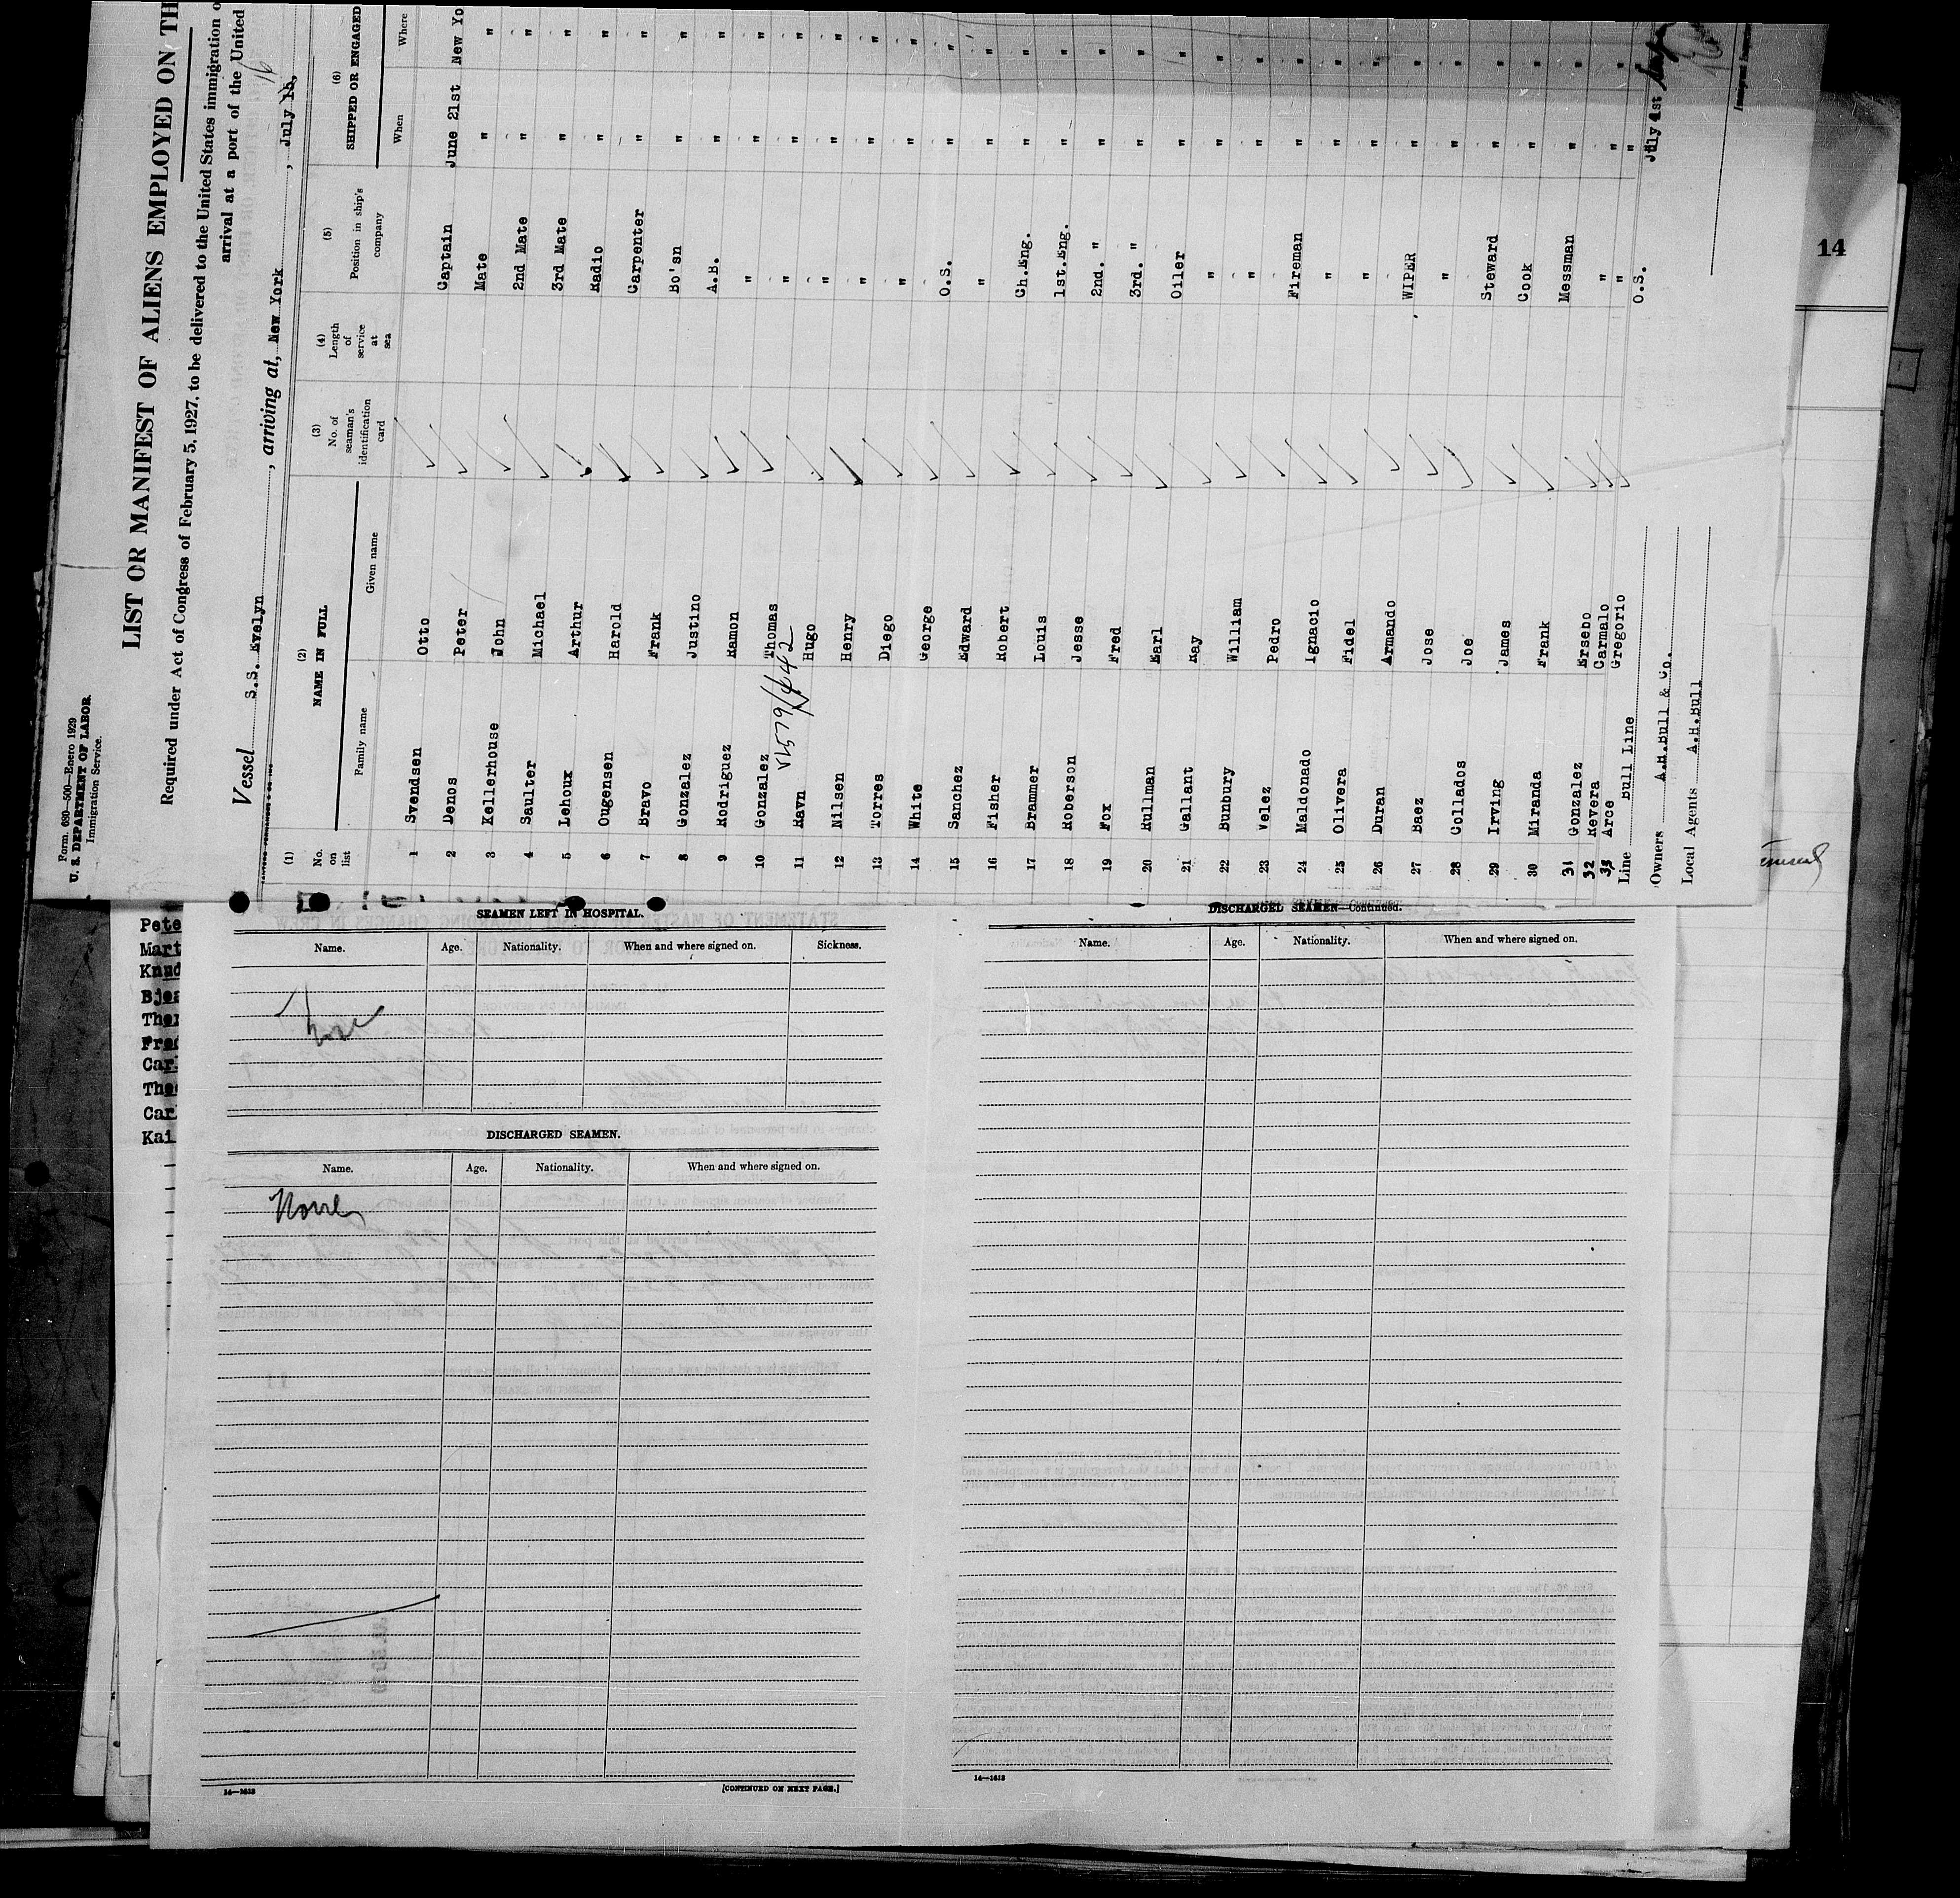 Form. 680—500—Enero 1929
U. S. DEPARTMENT OF LABOR
Immigration Service.
LIST OR MANIFEST OF ALIENS EMPLOYED ON TH
Required under Act of Congress of February 5, 1927, to be delivered to the United States immigration o
arrival at a port of the United
Vessel S.S. Evelyn, arriving at, New York, July 15, 16
(1) No. on list (2) NAME IN FULL Family name Given name (3) No. of seaman's identification card (4) Length of service at sea (5) Position in ship's company (6) SHIPPED OR ENGAGED When Where
1 Svendsen Otto Captain June 21st New Yo
2 Denos Peter Mate " "
3 Kellerhouse John 2nd Mate " "
4 Saulter Michael 3rd Mate " "
5 Lehoux Arthur Radio " "
6 Ougensen Harold Carpenter " "
7 Bravo Frank Bo'sn " "
8 Gonzalez Justino A.B. " "
9 Rodriguez Ramon " " "
10 Gonzalez Thomas " " "
11 Ravn Hugo " " "
12 Nilsen Henry " " "
13 Torres Diego " " "
14 White George O.S. " "
15 Sanchez Edward " " "
16 Fisher Robert Ch.Eng. " "
17 Brammer Louis 1st.Eng. " "
18 Roberson Jesse 2nd. " " "
19 Fox Fred 3rd. " " "
20 Rullman Earl Oiler " "
21 Gallant Ray " " "
22 Bunbury William " " "
23 Velez Pedro Fireman " "
24 Maldonado Ignacio " " "
25 Olivera Fidel " " "
26 Duran Armando WIPER " "
27 Baez Jose " " "
28 Collados Joe Steward " "
29 Irving James Cook " "
30 Miranda Frank Messman " "
31 Gonzalez Ersebo " " "
32 Revera Carmalo " " "
33 Arce Gregorio O.S. July 1st
Line Bull Line
Owners A.H.Bull & Co.
Local Agents A.H.Bull
14
Pete
Mart
Knud
Bjea
Ther
Fred
Carl
Theo
Car
Kai
SEAMEN LEFT IN HOSPITAL.
Name. Age. Nationality. When and where signed on. Sickness.
None
DISCHARGED SEAMEN.
Name. Age. Nationality. When and where signed on.
None
14—1613
[CONTINUED ON NEXT PAGE.]
DISCHARGED SEAMEN—Continued.
Name. Age. Nationality. When and where signed on.
14—1613